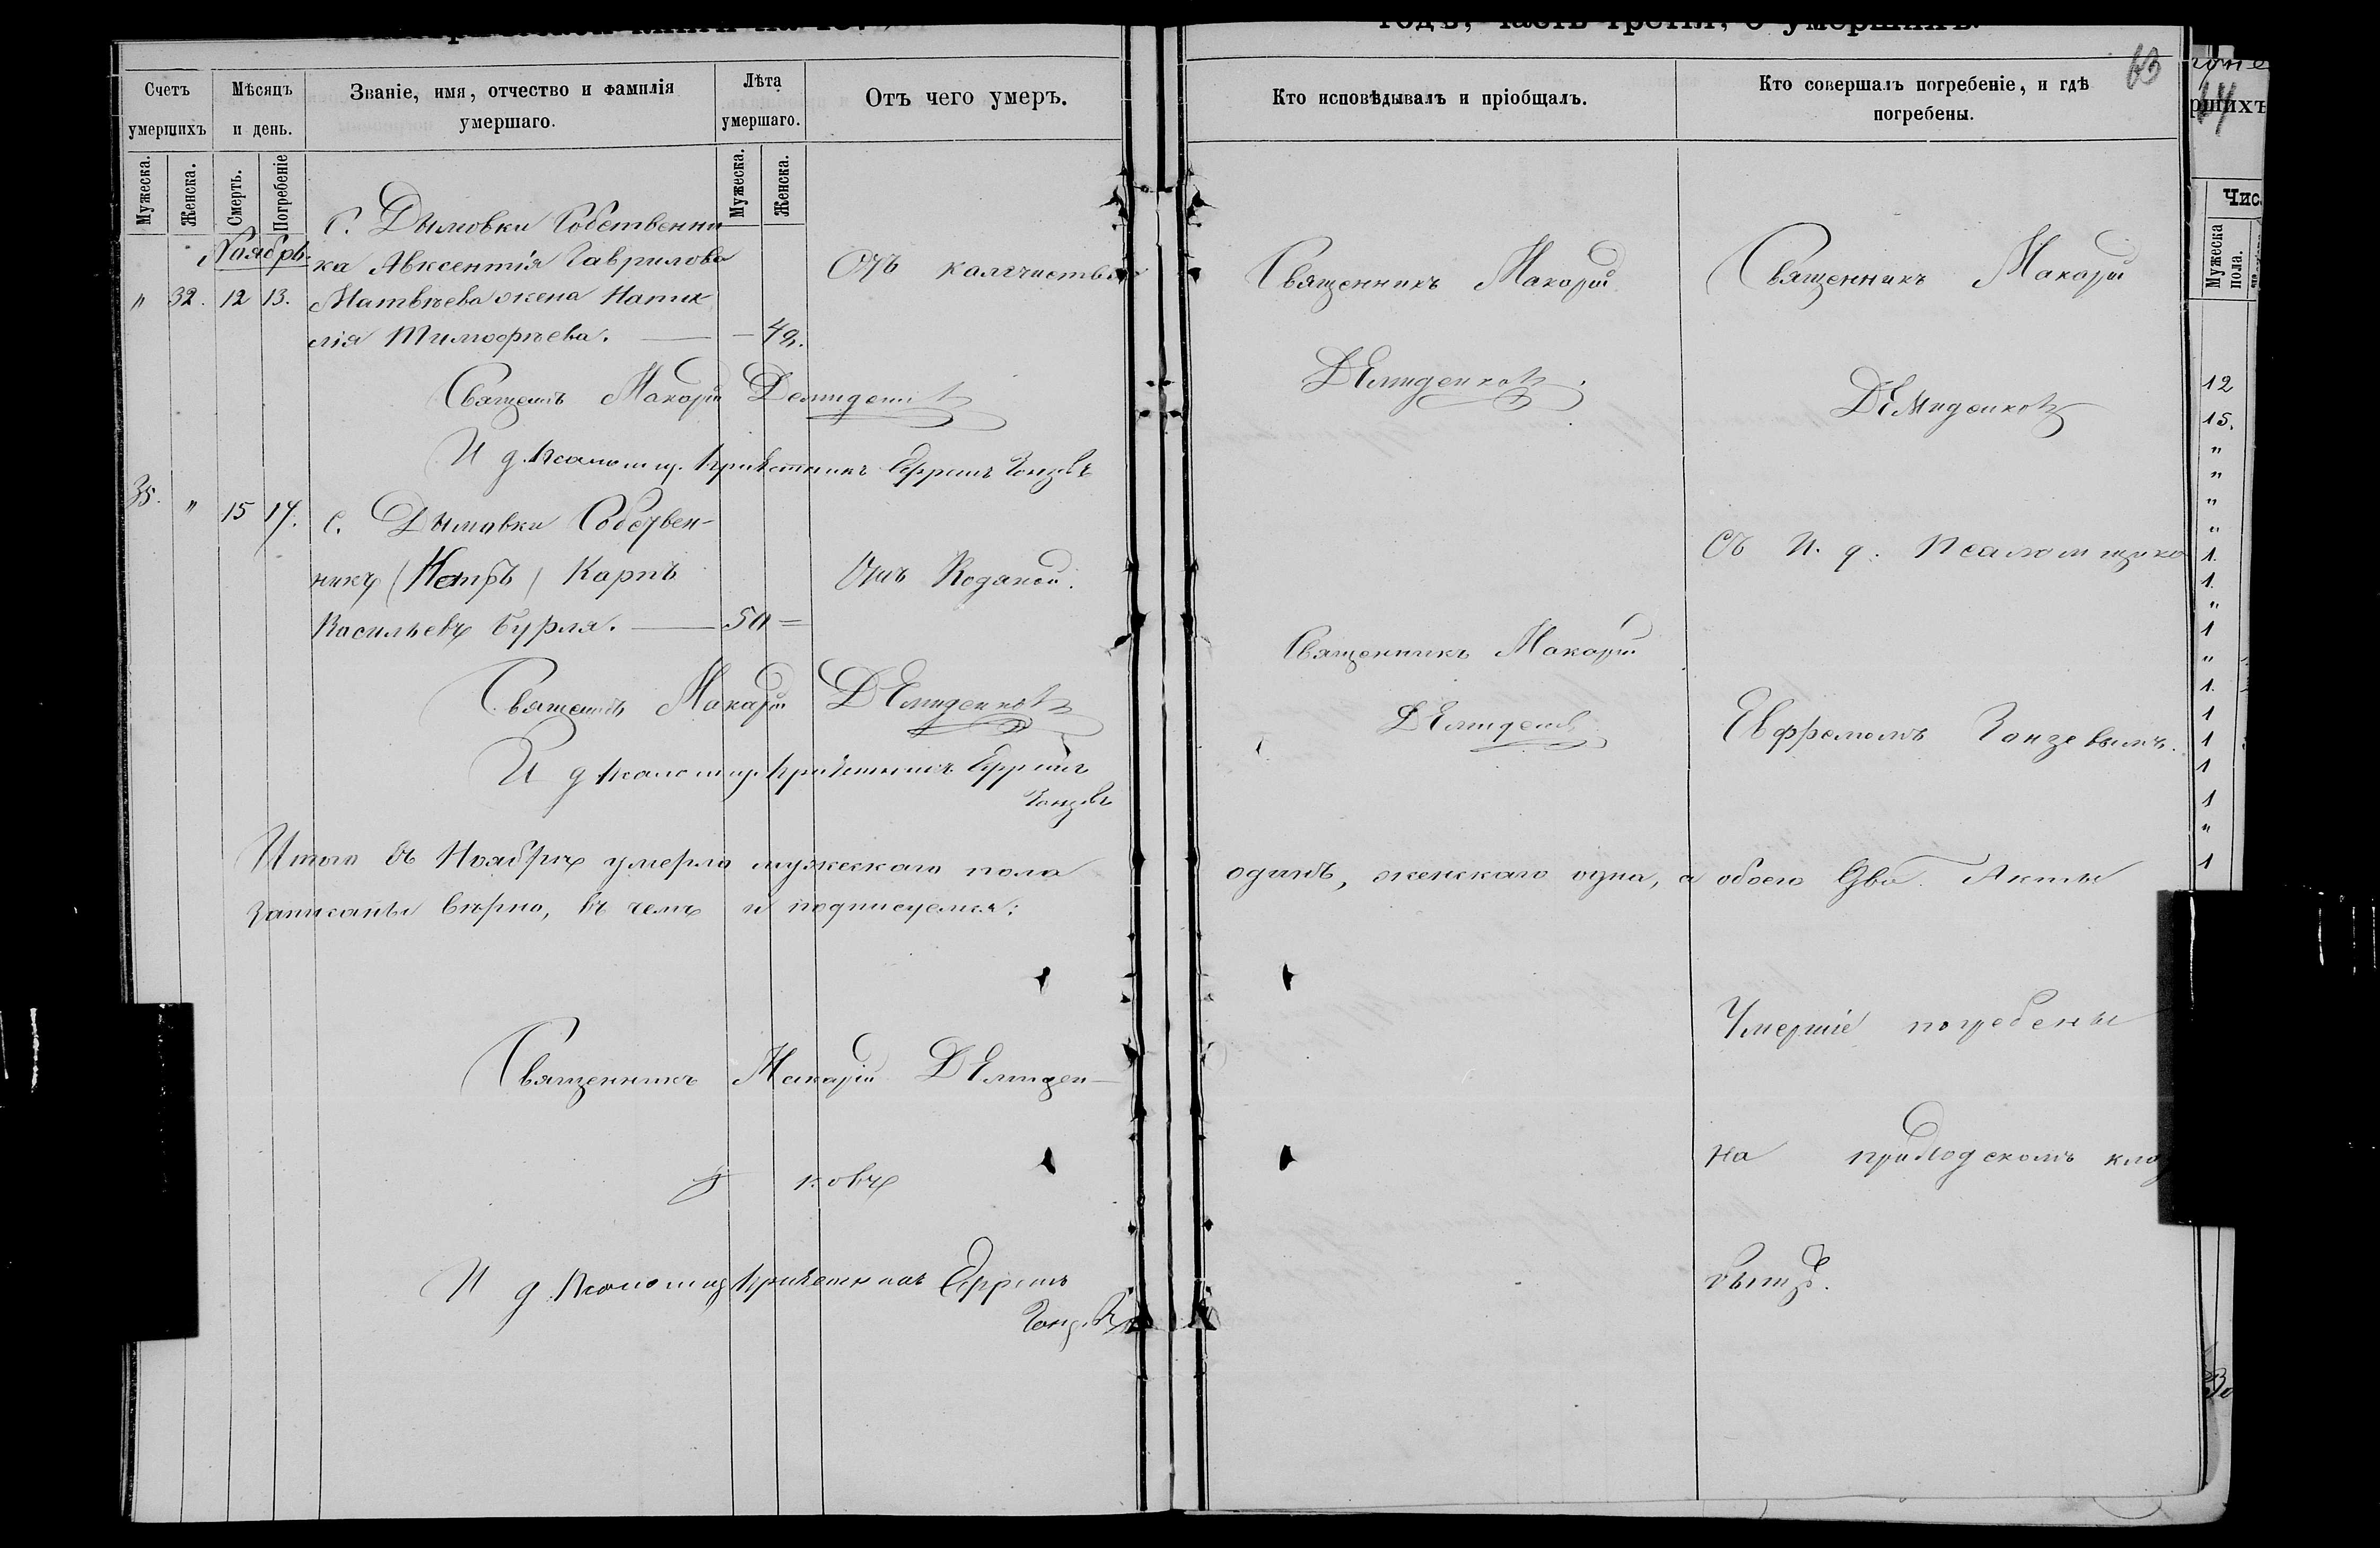 годъ, часть третія, о умершихъ.
63
Счетъ умершихъ
Мѣсяцъ и день.
Званіе, имя, отчество и фамилія умершаго.
Лѣта умершаго.
Отъ чего умеръ.
Кто исповѣдывалъ и пріобщалъ.
Кто совершалъ погребеніе, и гдѣ погребены.
Мужеска.
Женска.
Смерть.
Погребеніе
Мужеска.
Женска.
Ноябрь.
С. Дымовки Собственни
ка Авксентія Гаврилова
" 32. 12 13. Матвѣева жена Ната
лія Тимофѣева. — 49.
Отъ
Священникъ Макарій
Демиденковъ
Священникъ Макарій
Демиденковъ
Священникъ Макарій Демиденковъ
И д. псаломщ. Ефремъ
35. " 15 17. С. Дымовки Собствен-
никъ (Петръ) Карпъ
Васильевъ Бурля. — 50 =
Отъ Водяной.
Священникъ Макарій
Демиденковъ
Съ И. д. Псаломщико
Евфремомъ
Священникъ Макарій Демиденковъ
И д псаломщ. Ефремъ
Итого въ Ноябрѣ умерло мужескаго пола одинъ, женскаго одна, а обоего два. Акты
записаны вѣрно, въ чемъ и подписуемся:
Священникъ Макарій Демиден-
ковъ
И д. Псаломщ Ефремъ
Умершіе погребены
на приходскомъ клад
бищѣ.
ршихъ
Чис
Мужеска пола.
12
15.
"
"
"
"
1.
1.
"
1
"
1.
1
1
1
1
"
1